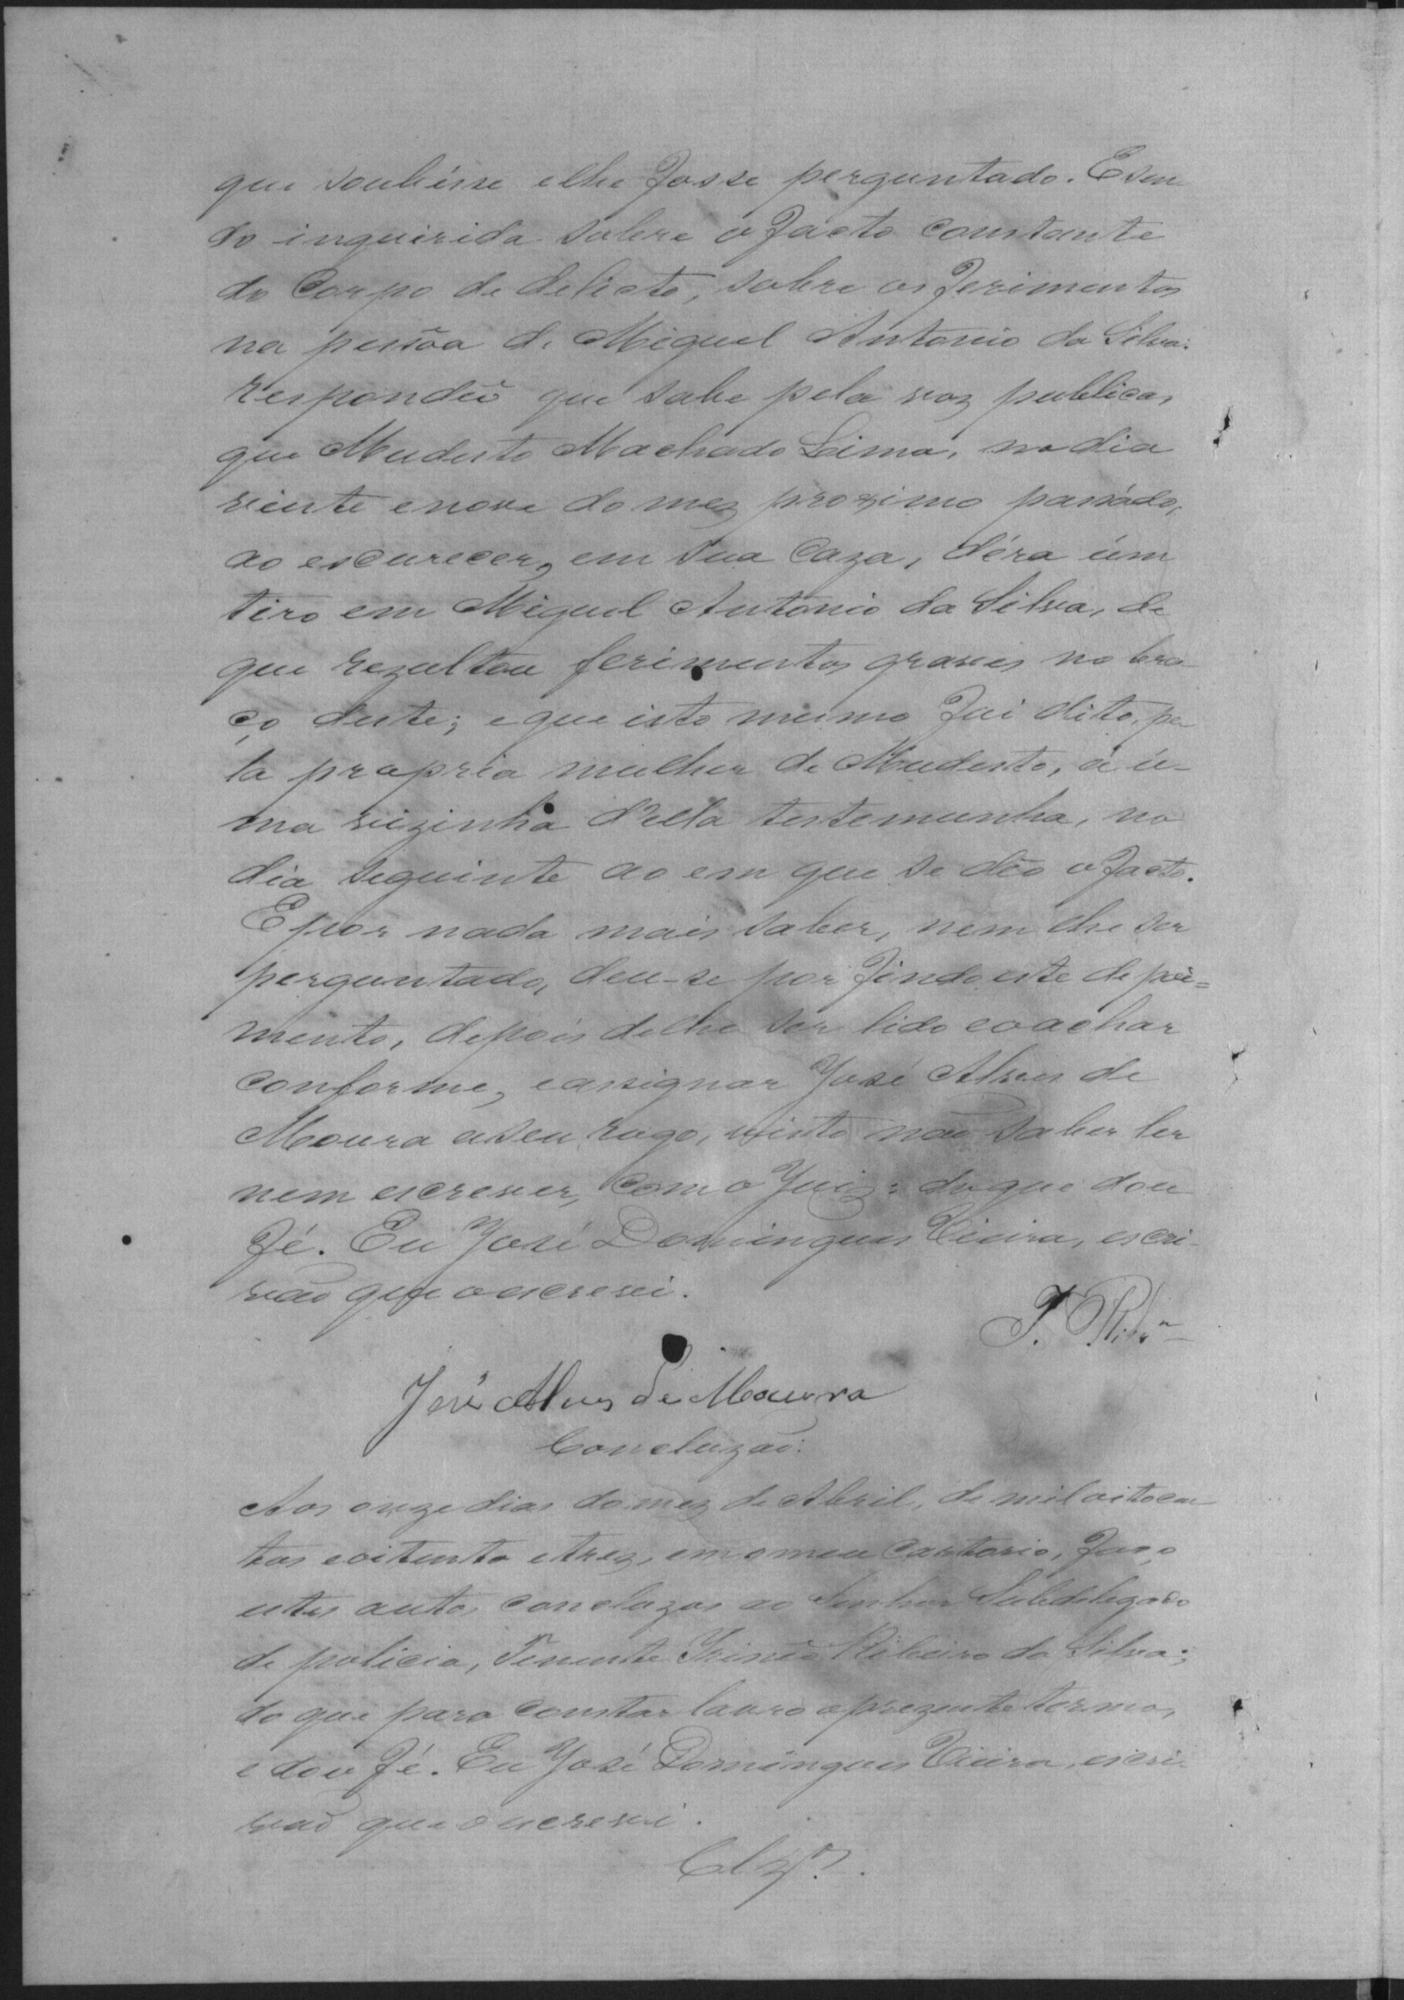 que soubésse e lhe fosse perguntado. E sen-
do inquirida sobre o facto constante
do Corpo de delicto, sobre os ferimentos
na pessôa de Miguel Antonio da Silva:
respondêo que sabe pela voz publica,
que Mudesto Machado Lima, no dia
vinte e nove do mez proximo passádo,
ao escurecer, em sua Caza, déra úm
tiro em Miguel Antonio da Silva, de
que rezultou ferimentos graves no bra-
ço deste; e que isto mesmo foi dito, pe-
la propria mulher de Mudesto, á ú-
ma vizinha d'ella testemunha, no
dia seguinte ao em que se dêo o facto.
E por nada mais saber, nem lhe ser
perguntado, deu-se por findo este depoi=
mento, depois de lhe ser lido e o achar
conforme, e assignar José Alves de
Moura a seu rogo, visto não saber ler
nem escrever, com o Juiz: do que dou
fé. Eu José Domingues Vieira, escri-
vão que o escrevi.
I. Rib.ro
José Alves de Moura
Concluzão:
Aos onze dias do mez de Abril, de mil oitocen-
tos e oitenta e trez, em o meu Cartorio, faço
estes autos concluzos ao Senhor Subdelegado
de policia, Tenente Irinêo Ribeiro da Silva;
do que para constar lavro o prezente termo,
e dou fé. Eu José Domingues Vieira, escri-
vão que o escrevi.
Clz.os